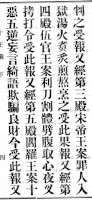 判之受報又經第三殿宋帝王案罪人入
獄湯火䔍炙煎熬苦之受此果報又經第
四殿伍官王案利刀割體劈腹取心夜叉
拷打令受此報又經第五殿閻羅王案十
惡五逆妄言綺語欺騙良財今受此報又
四